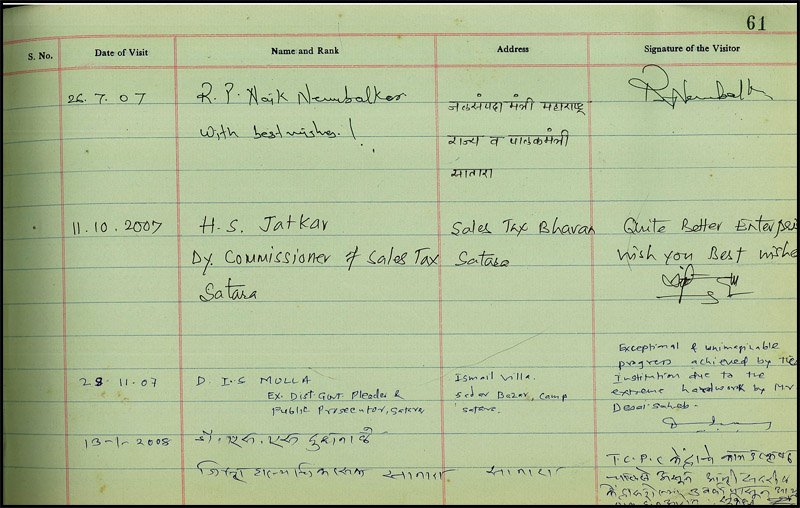 61
S. No. Date of Visit Name and Rank Address Signature of the Visitor
26.7.07 R. P. Naik Nembalker जलसंपदा मंत्री महाराष्ट्र
With best wishes.! राज्य व पालकमंत्री
सातारा
11.10.2007 H. S. Jatkar Sales Tax Bhavan Quite Better Enterpri
Dy. Commissioner of Sales Tax Satara wish you Best wishe
Satara
Exceptional & unimaginable
progress achieved by the
28.11.07 D. I.S MULLA Ismail Villa. Institution due to the
Ex. Dist Govt Pleader & Sadar Bazar, Camp extreme hardwork by Mr
Public Prosecutor, Satara Satara. Desai Saheb.
13-1-2008 डॉ. एस. एस.
जिल्हा सातारा सातारा T.C.P.C